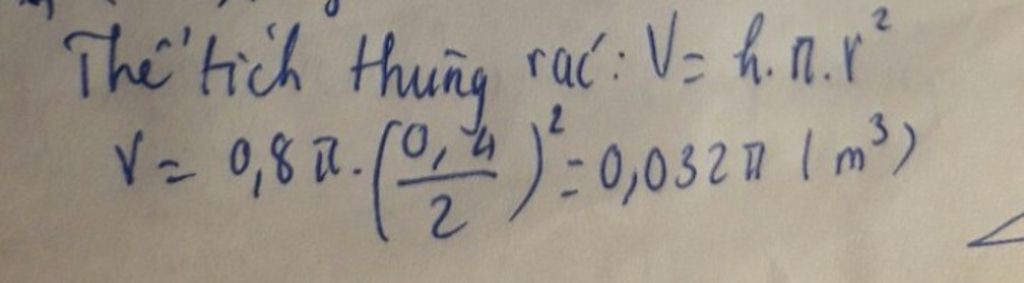 Thể tích thùng rác: V = h.π.r²
V = 0,8π.(0,4/2)² = 0,032π (m³)